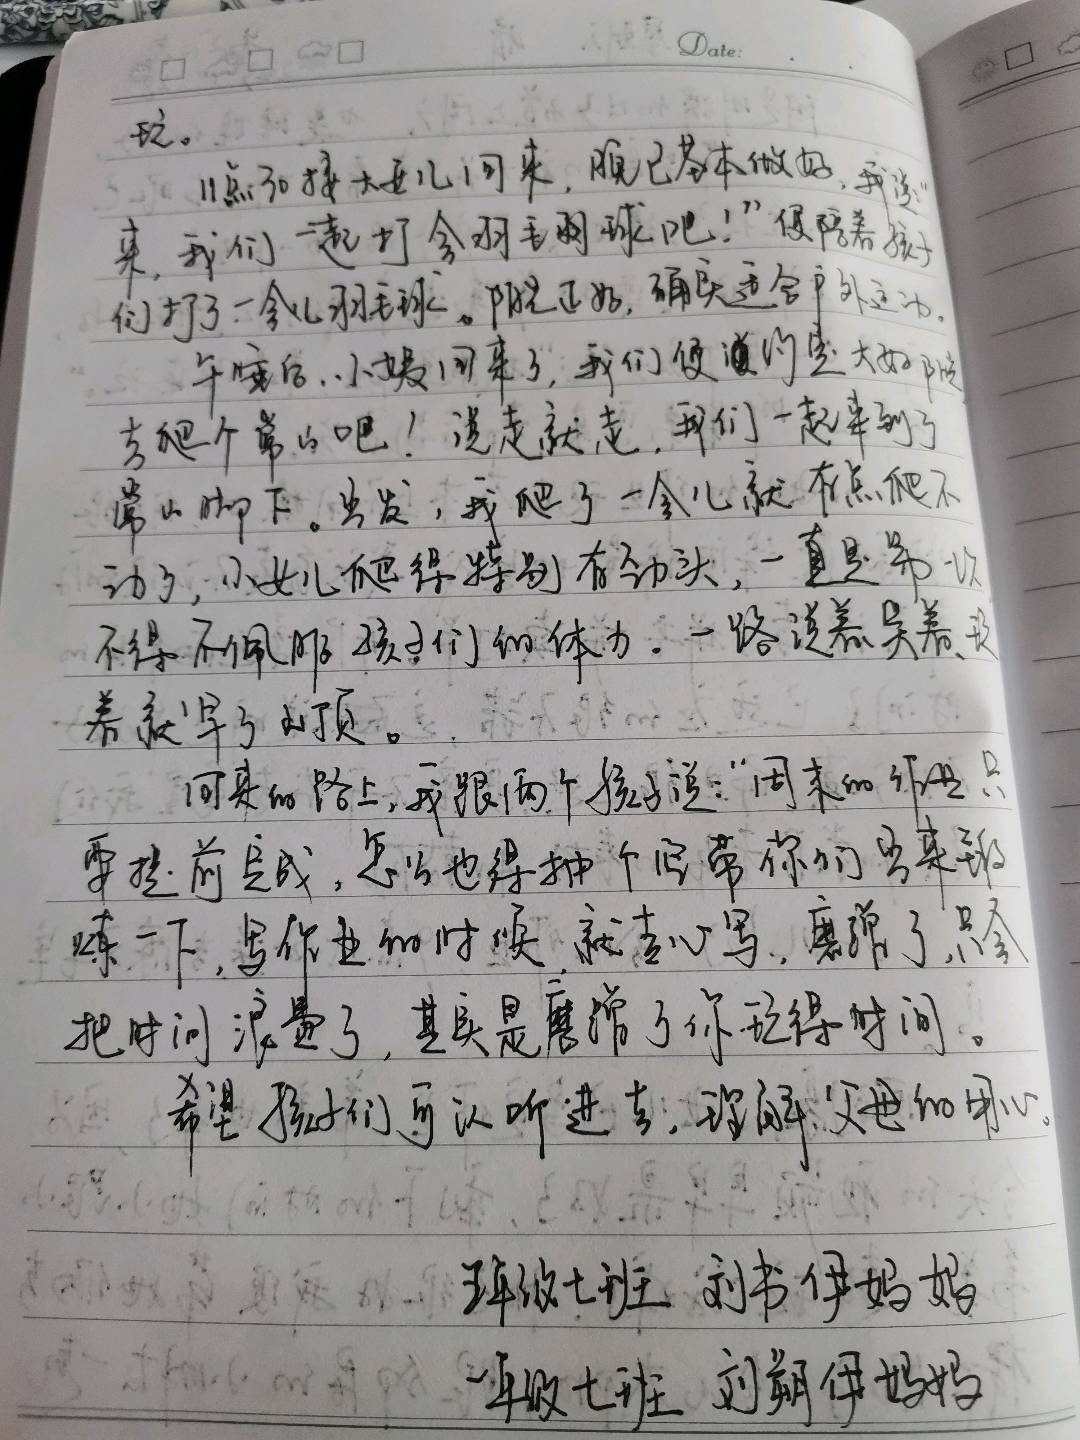 Date:
玩。
11点30接大女儿回来，腕已基本做好，我说“
来，我们一起打会羽毛羽球吧！”便陪着孩子
们打了一会儿羽毛球。阳光正好，确实适合户外运动。
午睡后，小媛回来了，我们便约定大好阳光
去爬个常山吧！说走就走，我们一起来到了
常山脚下。出发，我爬了一会儿就有点爬不
动了，小女儿爬得特别有劲头，一直是第一
不得不佩服孩子们的体力。一路说着笑着、玩
着就到了山顶。
回来的路上，我跟两个孩子说：“周末的作业只
要提前完成，怎么也得抽个空带你们出来锻
练一下，写作业的时候，就专心写，磨蹭了，只会
把时间浪费了，其实是磨蹭了你玩得时间。
希望孩子们可以听进去，理解父母的用心。
年级七班 刘书伊妈妈
一年级七班 刘朔伊妈妈